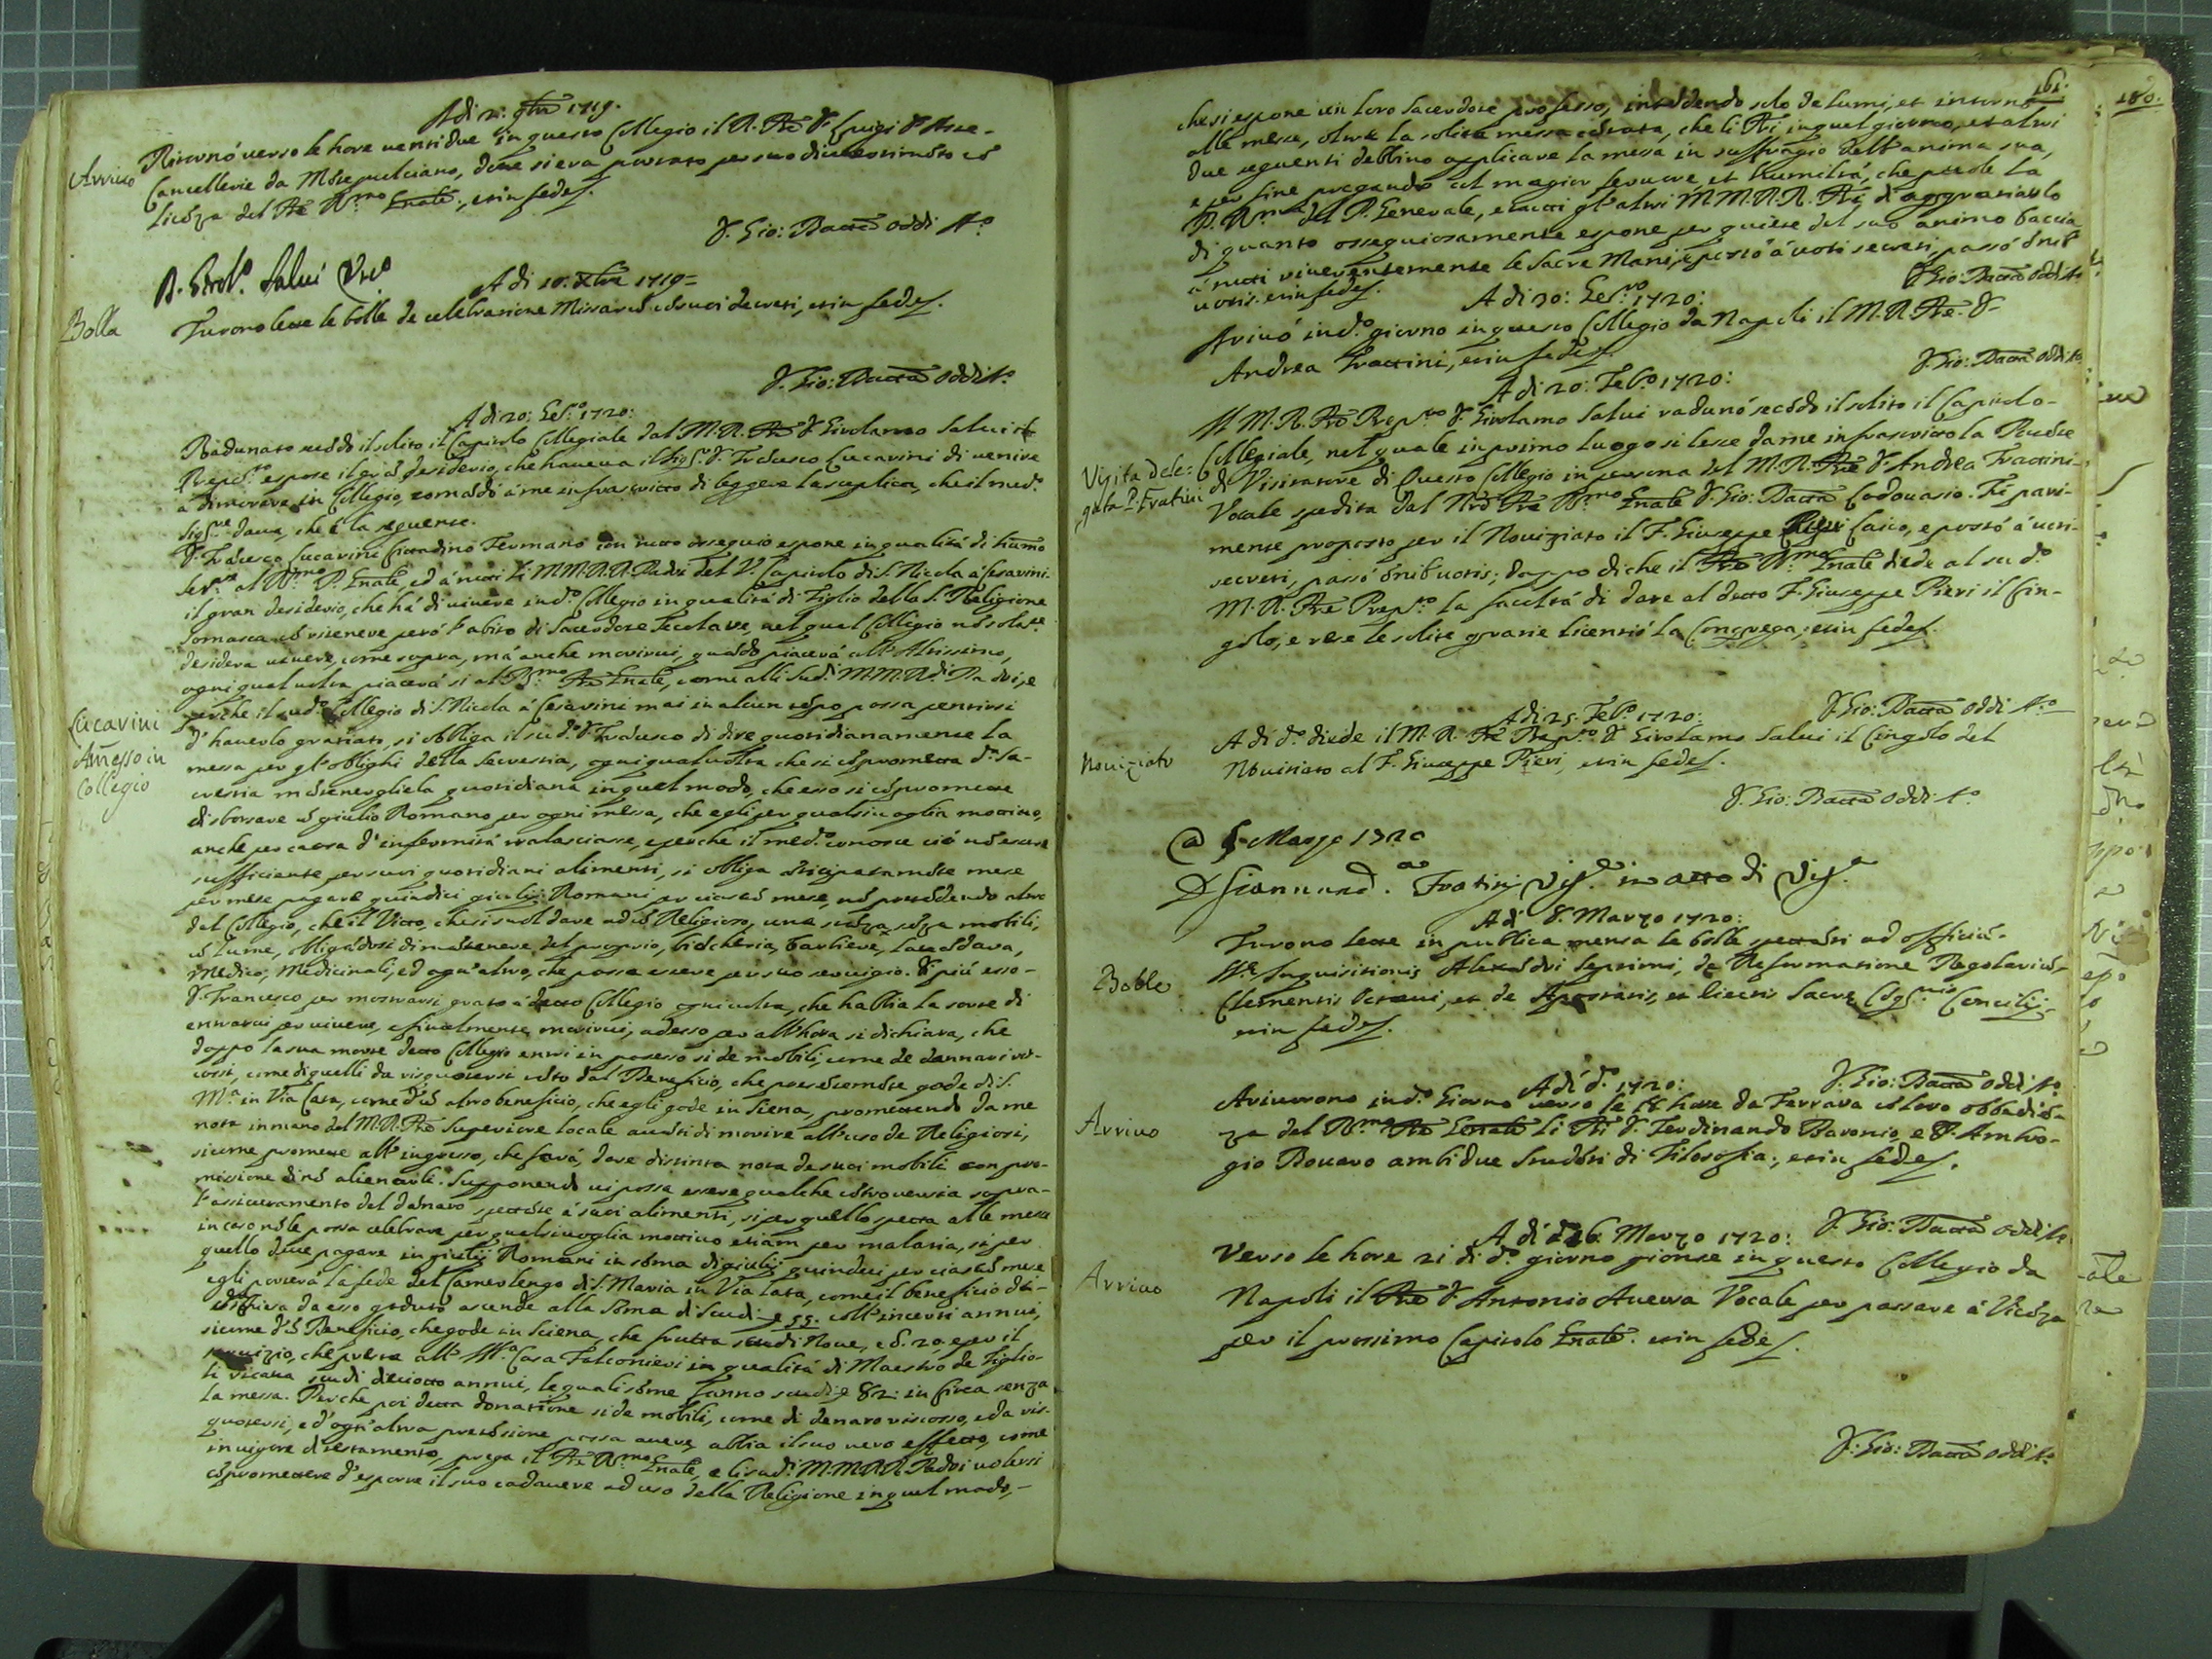 A di 2: 9bre 1719.
Arrivo
Ritornó verso le hore ventidue in questo Collegio il R. Pre D. Luigi D. Asce-
Cancellerie da Mõtepulciano, dove si era portato per suo divertimẽto cõ
licẽza del Pre Rmo Gnale, et in fede.
D. Gio: Batta Oddi Ao
D. Girolo Salvi Preo
A di 10. Xbre 1719-
Bolla
Furono lette le bolle de celebratione Missarũ cõ suoi decreti, et in fede.
D. Gio: Batta Oddi Ao
A di 20: Genro 1720:
Radunato secõdo il solito il Capitolo Collegiale dal M. R. Pre D. Girolamo Salvi
Preposto espose il grã desiderio, che haveva il Sigr D. Frãcesco Lucarini di venire
a dimorare in Collegio, comãdó á me infrascritto di leggere la suplica, che il medo
Sigre dava, che é la seguente.
D. Frãcesco Lucarini Cittadino Fermano con tutto ossequio espone in qualitá di humo
Servre al Rmo P. Gnale, ed á tutti li M.M.R.R. Padri del V. Capitolo di S. Nicola á Cesarini
il gran desiderio, che há di vivere in do Collegio in qualitá di Figlio della S. Religione
Somasca cõ ritenere peró l'abito di Sacerdote Secolare, nel qual Collegio nõ solate
desidera vivere, come sopra, má anche morirvi, quãdo piacerá all'Altissimo,
ogni qual volta piacerá si al Rmo Pre Gnale, come alli sudi M.M.R.di Padri, e
perche il sudo Collegio di S. Nicola á Cesarini mai in alcun tẽpo possa pentirsi
Lucarini
Amesso in
Collegio
d'haverlo gratiato, si obliga il sudo D. Frãcesco di dire quotidianamente la
messa per gl'oblighi della Sacrestia, ogni qual volta che si cõprometta da Sa-
crestia mãtenergliela quotidiana in quel modo, che esso si cõpromette
di sborsare ũ giulio Romano per ogni messa, che egli per qualsivoglia mottivo,
anche per causa d'infermitá tralasciasse, e perche il medo conosce ció nõ essere
sufficiente per suoi quotidiani alimenti, si obliga ãticipatamẽte mese
per mese pagare quindici giulij Romani per ciascũ mese, nõ pretẽdendo altro
dal Collegio, che il Vitto, che si suol dare ad ũ Religioso, una stãza sẽza mobili,
ũ lume, obligãdosi di mãtenere del proprio, biãcheria, barbiere, lavãdara,
Medico, Medicinali, ed ogn'altro, che possa essere per suo servigio. Di piú esso
D. Francesco per mostrarsi grato á detto Collegio ogni volta, che habbia la sorte di
entrarvi per vivere, e finalmente morirvi, adesso per all'hora si dichiara, che
doppo la sua morte detto Collegio entri in possesso si de mobili, come de dannari ris-
cossi, come di quelli da risquotersi tãto dal Beneficio, che presẽtemẽte gode di S.
Ma in Via Lata, come d'ũ altro beneficio, che egli gode in Siena, promettendo dare
nota in mano del M.R. Pre Superiore locale avãti di morire all'uso de Religiosi,
sicome promette all'ingresso, che fará, dare distinta nota de suoi mobili con pro-
missione di nõ alienarli. Supponendo vi possa essere qualche cõtroversia sopra-
l'assicuramento del dãnaro spettãte á suoi alimenti, si per quello spetta alle messe
in caso nõ le possa celebrare per qualsivoglia mottivo etiam per malatia, si per
quello deve pagare in giulij Romani in sõma di giulij quindeci per ciascũ mese
egli porterá la fede del Camerlengo di S. Maria in Via Lata, come il beneficio di
da esso goduto ascende alla sõma di Scudi 55. coll'incerti annui,
sicome d'ũ Beneficio, che gode in Sciena, che frutta scudi Nove, e b. 20. e per il
servizio, che presta all'Illma Casa Falconieri in qualitá di Maestro de Figlio-
li ricava scudi diciotto annui, le quali sõme fanno scudi 82: in circa senza
la messa. Perche poi detta donatione si de mobili, come di denaro riscosso, e da ris-
quotersi, e d'ogn'altra pretẽsione possa avere, abbia il suo vero effetto, come
in vigore di testamento, prega il Pre Rmo Gnale, e li sudi M.M.R.R. Padri volersi
cõpromettere d'esporre il suo cadavere ad uso della Religione in quel modo,-
161.
180.
che si espone un loro Sacerdote professo, intẽdendo solo de lumi, et intorno
alle messe, oltre la solita messa cãtata, che li Pri in quel giorno, et altri
due seguenti debbino applicare la messa in suffragio dell'anima sua,
e per fine pregando col magior fervore, et humiltá, che puole la
P. Rma del P. Generale, e tutti gl'altri M.M.R.R. Pri d'aggratiarlo
di quanto ossequiosamente espone per quiete del suo animo baccia
á tutti riverentemente le Sacre Mani, e portó á voti secreti, passó õnib
votis. et in fede.
D. Gio: Batta Oddi Ao
A di 30: Genro 1720:
Arivó in do giorno in questo Collegio da Napoli il M. R. Pre D.
Andrea Frattini, et in fede.
D. Gio: Batta Oddi Ao
A di 20: Febo 1720:
Il M. R. Pre Preposto D. Girolamo Salvi radunó secõdo il solito il Capitolo
Visita dele:
gata P. Fratini
Collegiale, nel quale in primo luogo si lesse da me infrascritto la Patẽte
di Visitatore di Questo Collegio in persona del M. R. Pre D. Andrea Frattini-
Vocale spedita dal Nro Pre Rmo Gnale D. Gio: Batta Lodovasio. Fú pari-
mente proposto per il Novitiato il F. Giuseppe Pieri Laico, e portó á voti
secreti, passó õnib votis; doppo di che il Pre Rmo Gnale diede al sudo
M. R. Pre Preposto la facultá di dare al detto F. Giuseppe Pieri il Cin-
golo, e rese le solite gratie licentió la Congrega; et in fede.
D. Gio: Batta Oddi Ao
A di 25. Febo 1720:
Noviziato
A di do diede il M. R. Pre Preposto D. Girolamo Salvi il Cingolo del
Novitiato al F. Giuseppe Pieri, et in fede.
D. Gio: Batta Oddi Ao
@ 5 Marzo 1720
D Giannand.a Fratini Visre in atto di Visa
A di 8. Marzo 1720:
Bolle
Furono lette in publica mensa le bolle spettãti ad officiũ
Ste Inquisitionis Alexãdri Septimi, de Reformatione Regolariũ
Clementis Octavi, et de Apostatis, et Eiectis Sacre Cõgnis Concilij:
et in fede.
D. Gio: Batta Oddi Ao
A dí do 1720:
Arrivo
Arivorono in do Giorno verso le 18 hore da Ferrara cõ loro obbediẽ-
za del Rmo Pre Gnale li Pri D. Ferdinando Baronio, e D. Ambro-
gio Bovaro ambidue Studẽti di Filosofia, et in fede.
D. Gio: Batta Oddi Ao
A di 26. Marzo 1720:
Arrivo
Verso le hore 21 di do giorno gionse in questo Collegio da
Napoli il Pre D. Antonio Aversa Vocale per passare á Vicẽza
per il prossimo Capitolo Gnale. et in fede.
D. Gio: Batta Oddi Ao